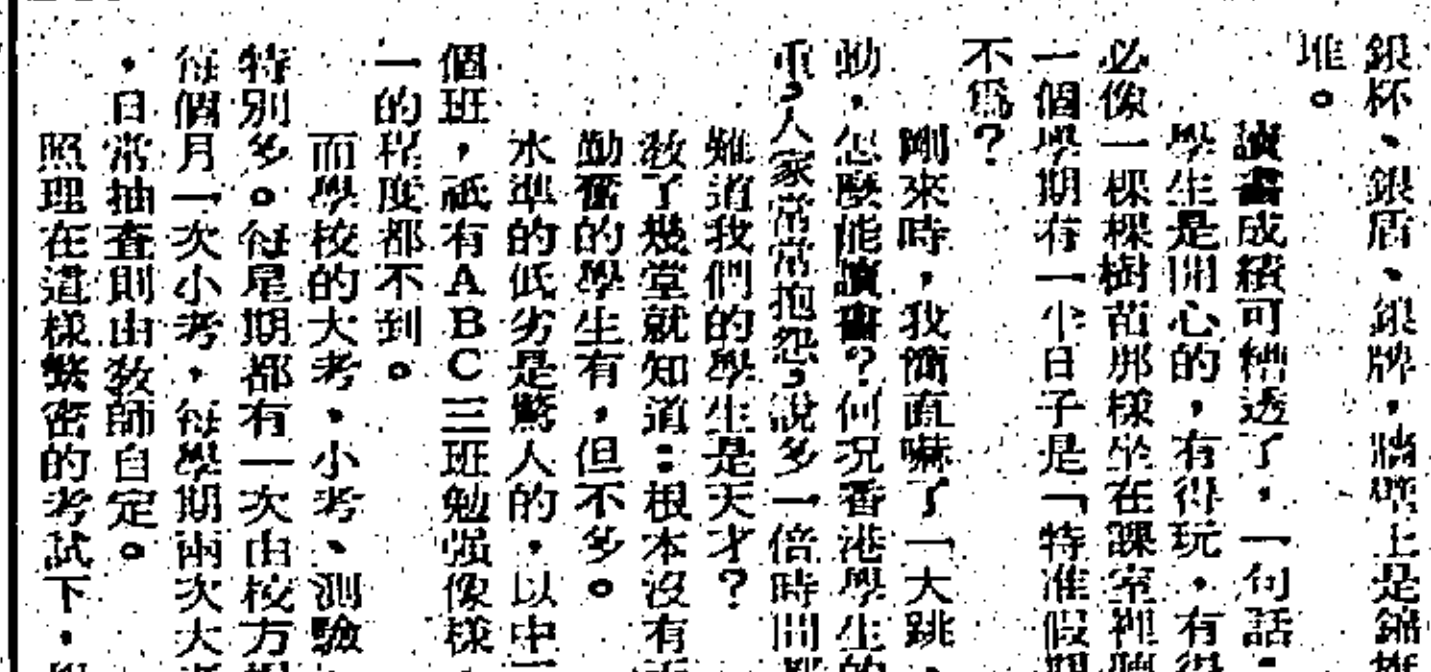 銀杯、銀盾、銀牌，牆壁上是錦旗
堆。
讀書成績可糟透了，一句話：
學生是開心的，有得玩，有得
必像一棵棵樹苗那樣坐在課室裡聽
一個學期有一半日子是「特准假期
不爲？
剛來時，我簡直嚇了一大跳，
動，怎麼能讀書？何況香港學生的
重，人家常常抱怨，說多一倍時間都
難道我們的學生是天才？
敎了幾堂就知道：根本沒有
勤奮的學生有，但不多。
水準的低劣是驚人的，以中
個班，祇有ABC三班勉强像樣，
一的程度都不到。
而學校的大考，小考、測驗
特別多。每星期都有一次由校方
每個月一次小考，每學期兩次大
，日常抽查則由敎師自定。
照理在這樣繁密的考試下，